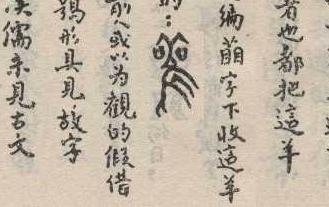 者也都把這羊
編萠字下收這羊
的：
前人或以为觀的假借
鴞形具見故字
漢儒未見古文